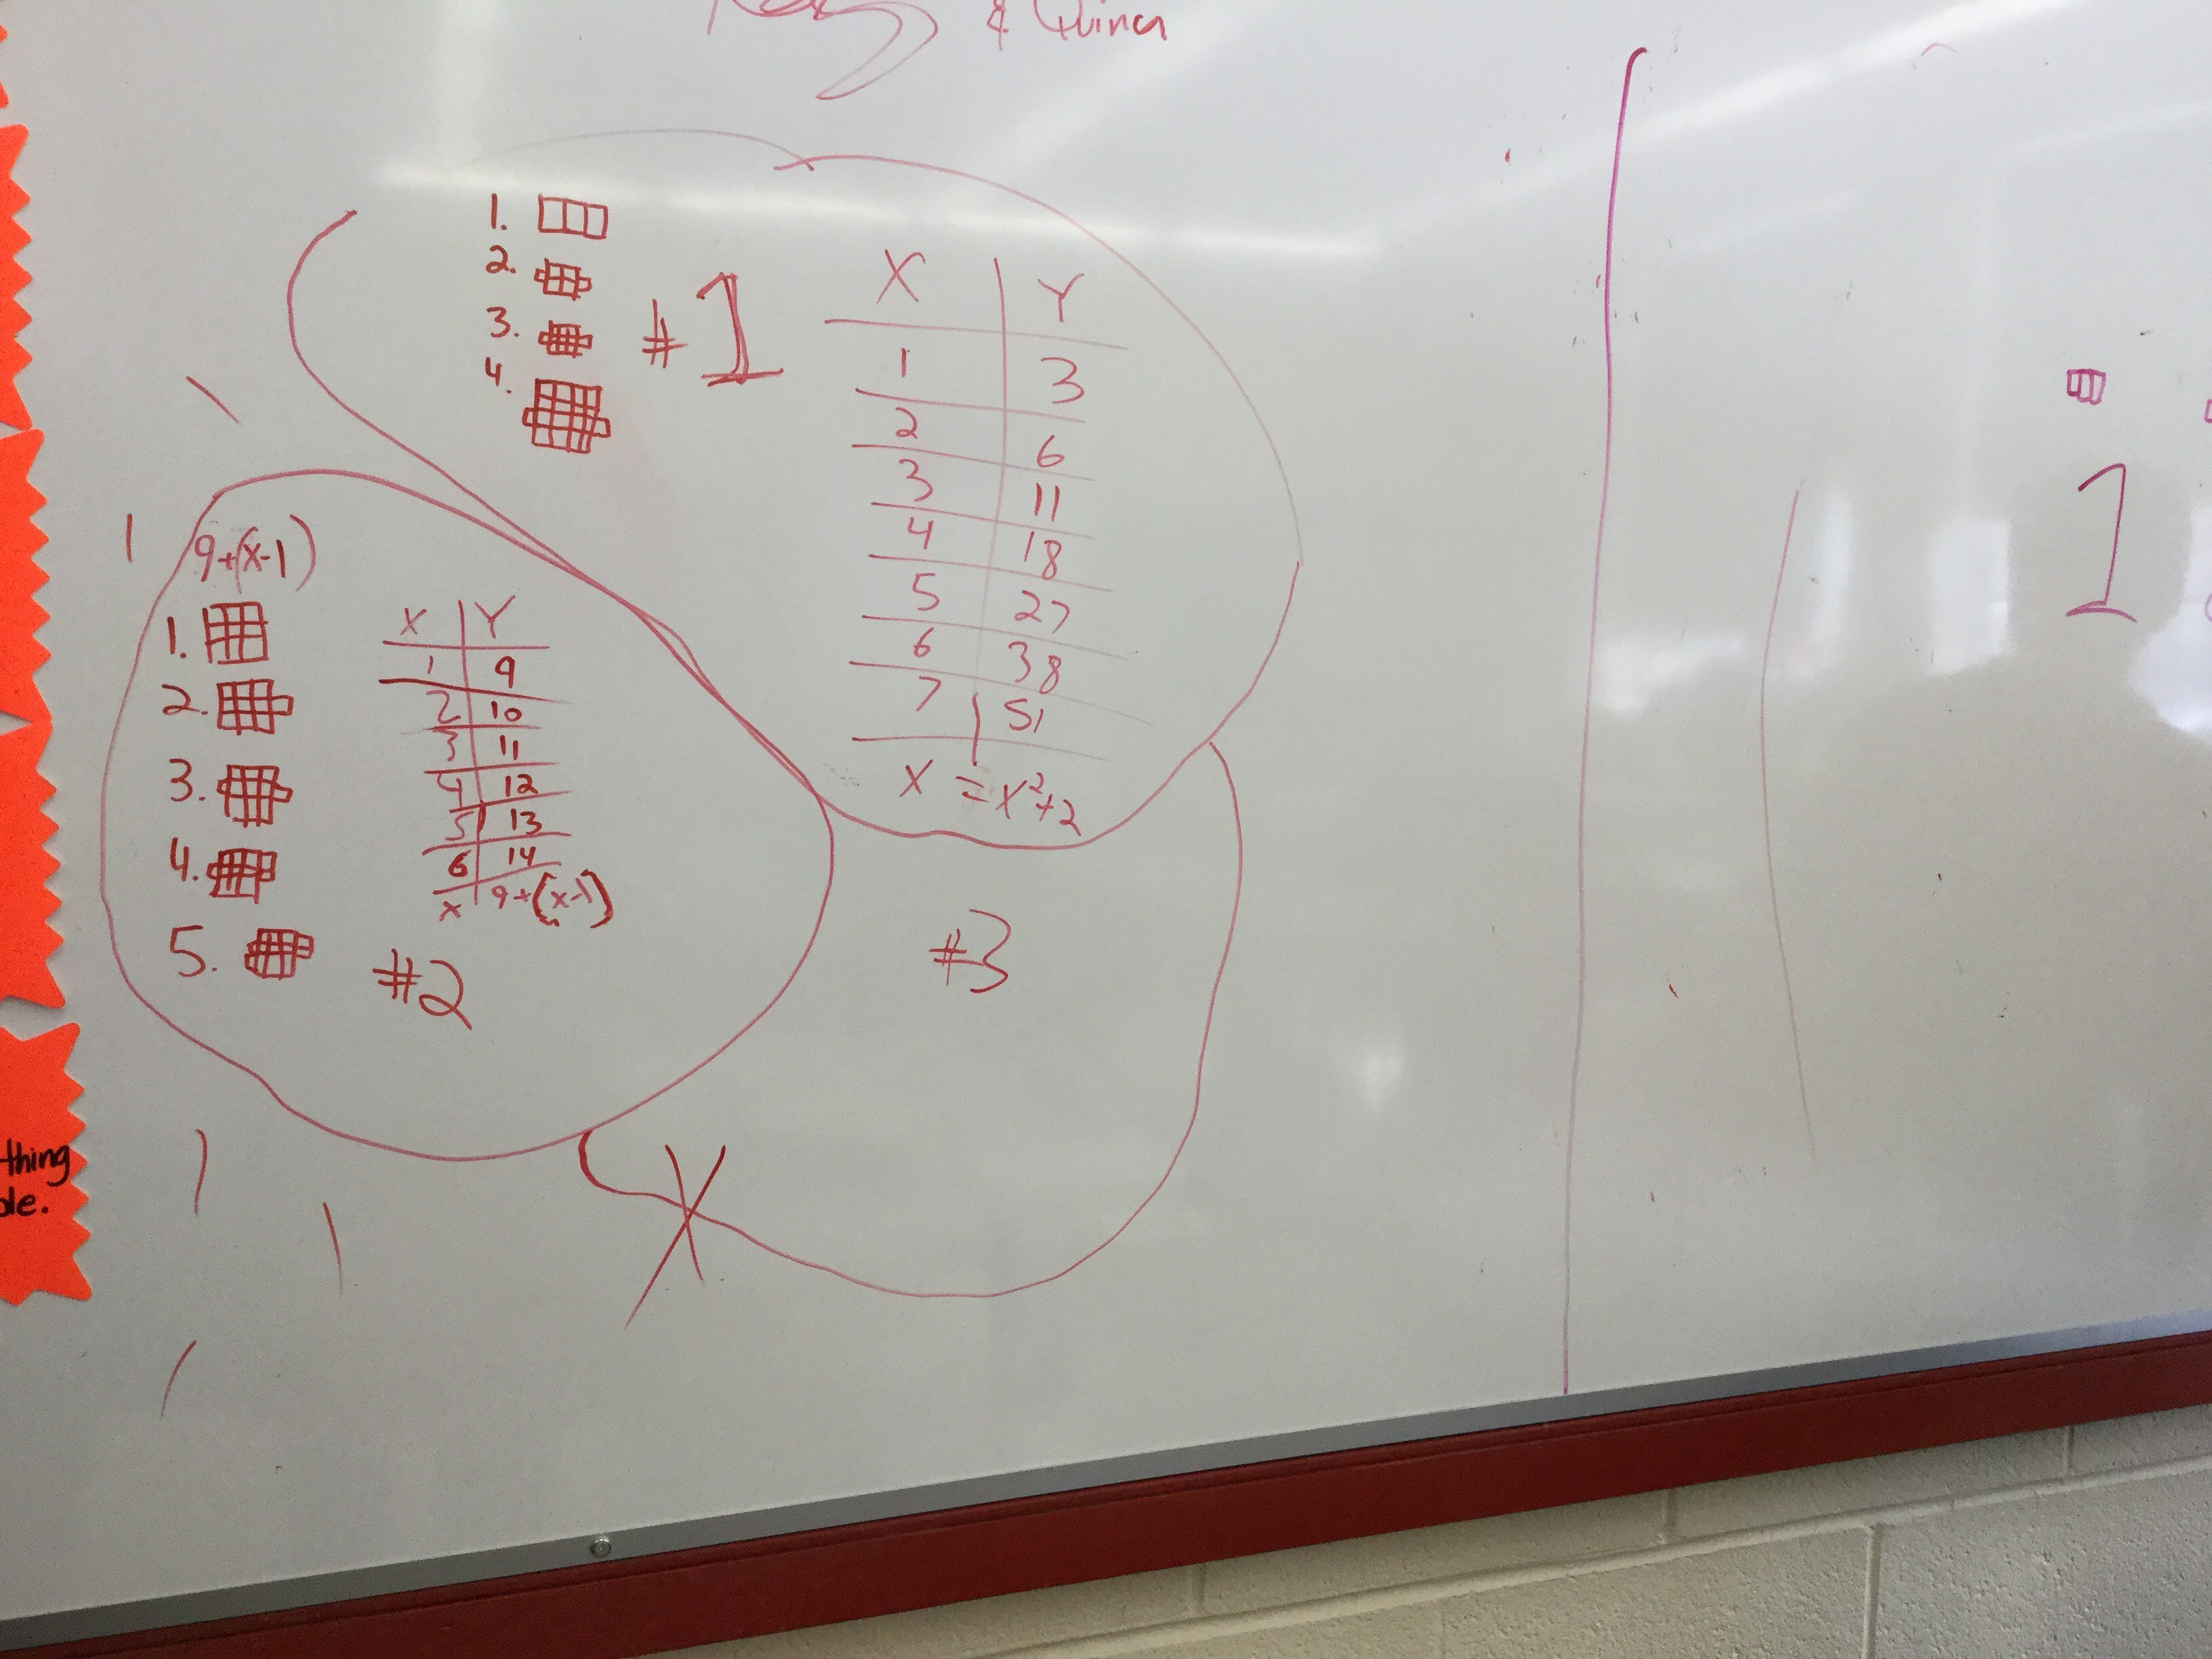 & Quincy
1.
2.
3.
4.
#1
X Y
1 3
2 6
3 11
4 18
5 27
6 38
7 51
X = X²+2
9+(x-1)
1.
2.
3.
4.
5.
X Y
1 9
2 10
3 11
4 12
5 13
6 14
x 9+(x-1)
#2
#3
X
1
thing